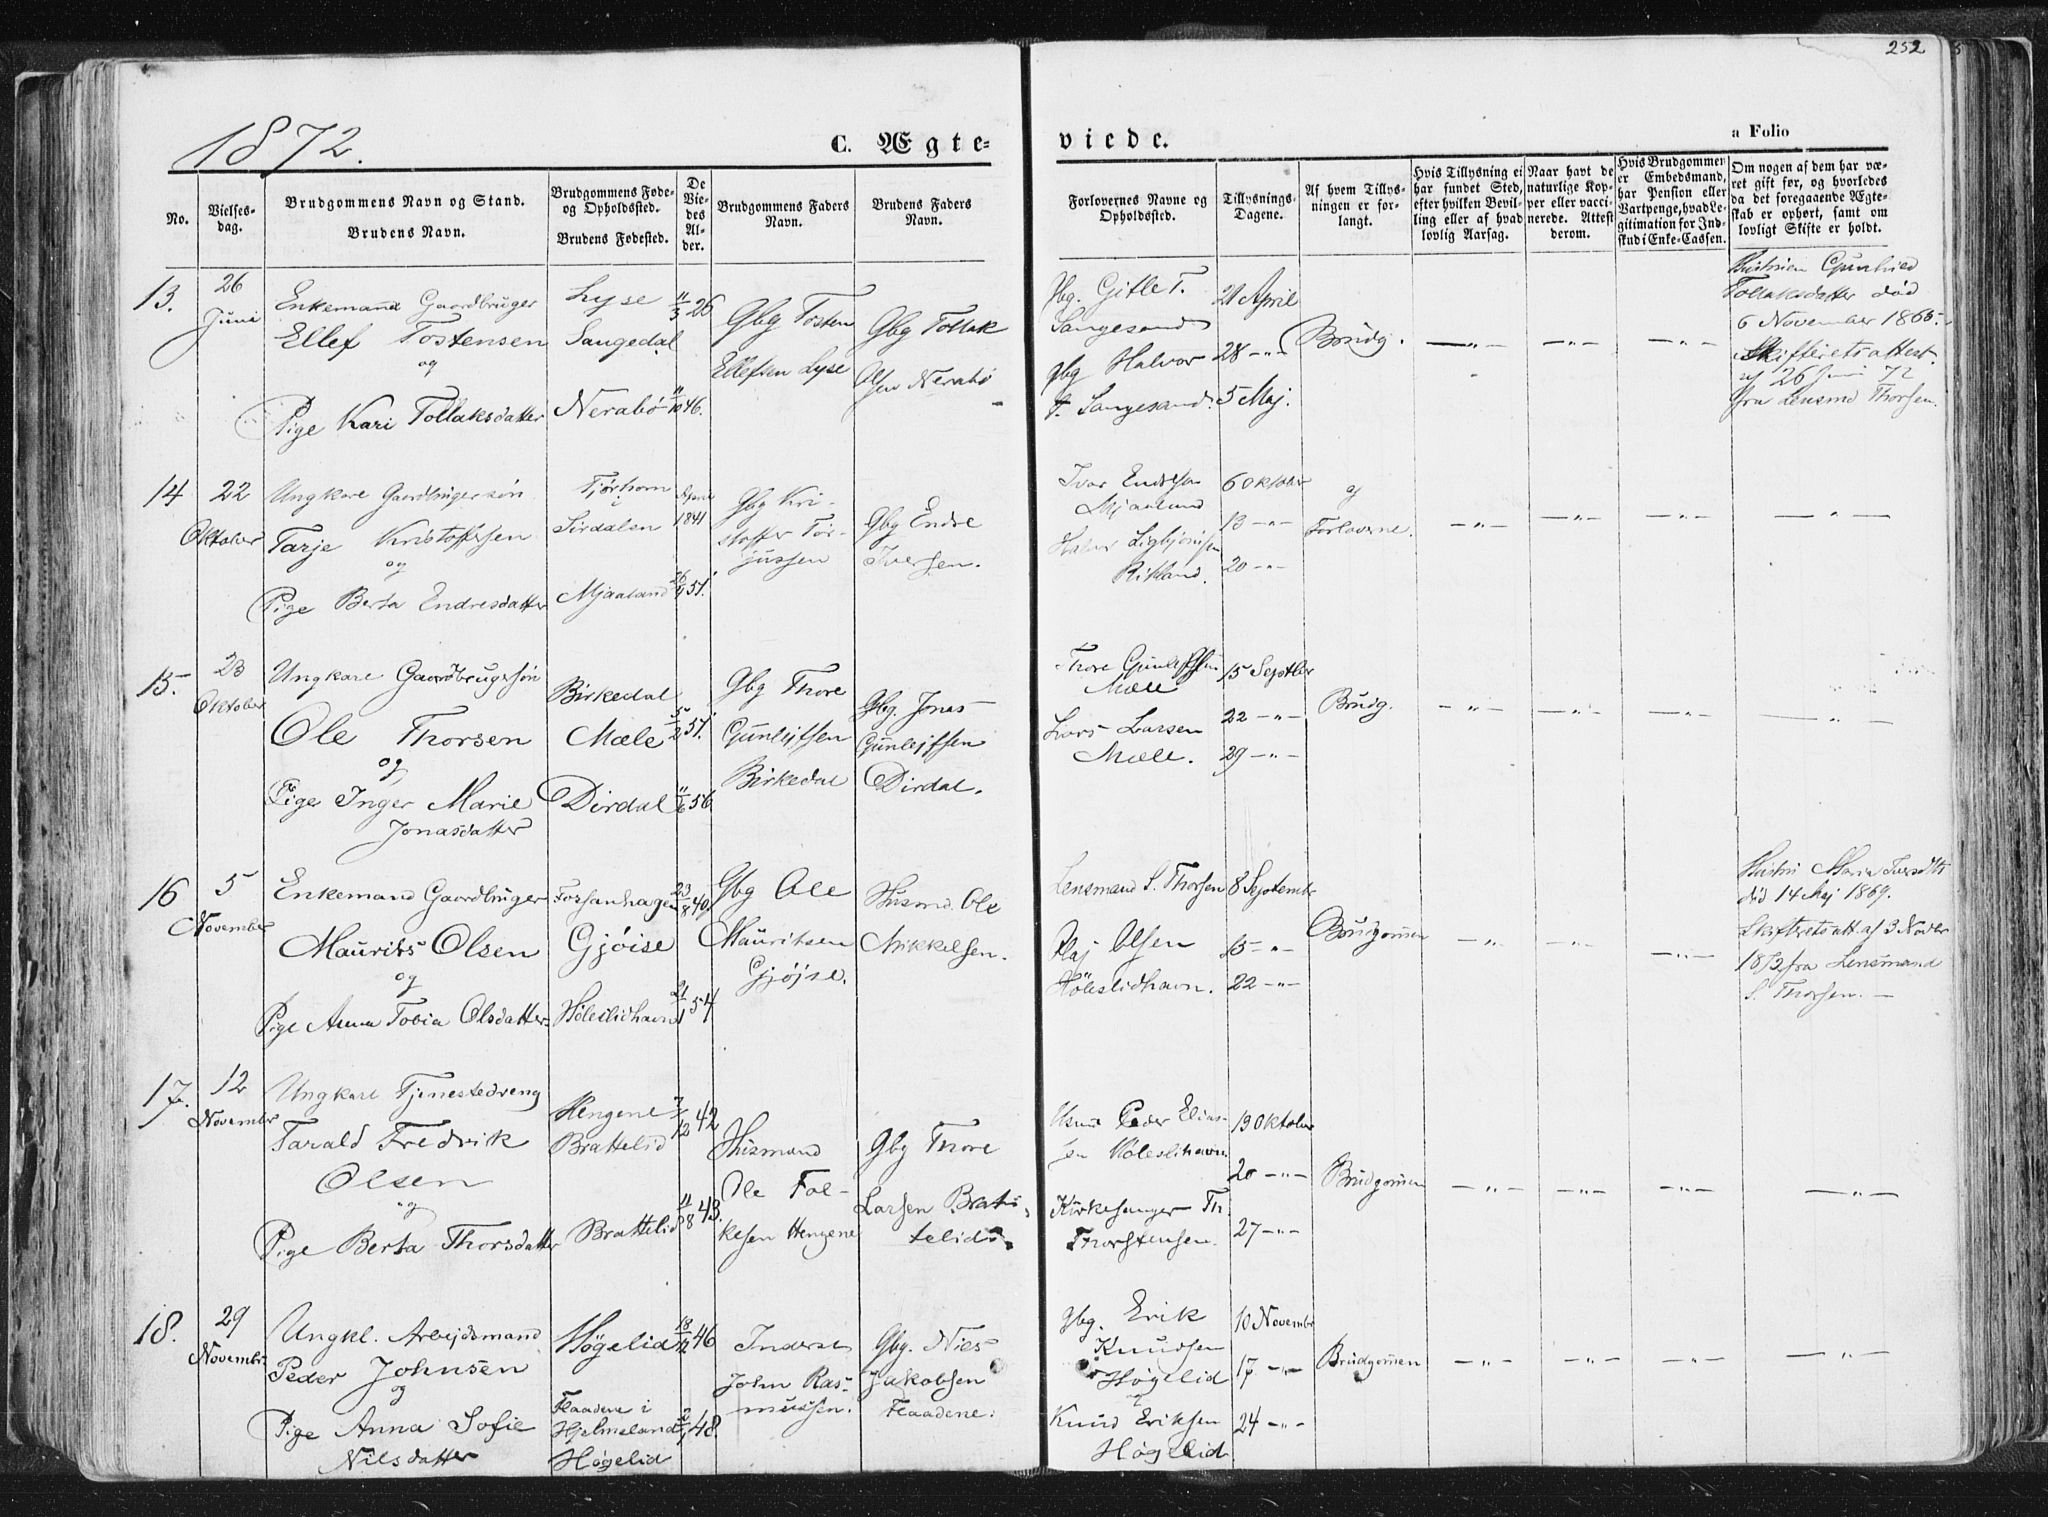 252
1872.
C. Ægte-
viede.
a Folio
No.
Vielses-
dag.
Brudgommens Navn og Stand.
Brudens Navn.
Brudgommens Føde-
og Opholdssted.
Brudens Fødested.
De
Vie-
des
Al-
der.
Brudgommens Faders
Navn.
Brudens Faders
Navn.
Forlovernes Navne og
Opholdssted.
Tillysnings-
Dagene.
Af hvem Tillys-
ningen er for-
langt.
Hvis Tillysning ei
har fundet Sted,
efter hvilken Bevil-
ling eller af hvad
lovlig Aarsag.
Naar havt de
naturlige Kop-
per eller vacci-
nerede. Attest
derom.
Hvis Brudgommen
er Embedsmand,
har Pension eller
Vartpenge, hvad Le-
gitimation for Ind-
skud i Enke-Cassen.
Om nogen af dem har væ-
ret gift før, og hvorledes
da det foregaaende Ægte-
skab er ophørt, samt om
lovligt Skifte er holdt.
13.
26
Juni
Enkemand Gaardbruger
Ellef Tostensen
og
Pige Kari Tollaksdatter
Lyse
Sangedal
Nerabö
11/3 26
11/10 46.
Gbg Tosten
Ellefsen Lyse
Gbg Tollak
Olsen Nerabö
Gbg. Gitle T.
Sangesand
Gbg Halvor
T. Sangesand.
21 April
28 -"-
5 Maj.
Brudg.
-"-
-"-
-"-
Gunhild
Tollaksdatter död
6 November 1865.
Skifteretsattest
af 26 Juni 72
fra Lensmd Thorsen.
14
22
Oktober
Ungkare Gaardbrugersön
Tarje Kristoffersen
og
Pige Berta Endresdatter
Tjörhom
i
Sirdalen
Mjaaland
1841
26/4 51.
Gbg Kri-
stoffer Tör-
jussen
Gbg Endre
Iversen.
Ivar Endresen
Mjaaland
Halvor Sigbjörnsen
Rikland.
6 Oktober
13 -"-
20 -"-
af
Forloverne.
-"-
-"-
-"-
-"-
15.
23
Oktober
Ungkare Gaardbrugersön
Ole Thorsen
og
Pige Inger Marie
Jonasdatter
Birkedal
Mæle
Dirdal
5/2 51.
11/6 56
Gbg Thore
Gunlejfsen
Birkedal
Gbg. Jonas
Gunlejfsen
Dirdal.
Thore Gunlejfsen
Mæle
Lars Larsen
Mæle.
15 Septbr
22 -"-
29 -"-
Brudg.
-"-
-"-
-"-
-"-
16
5
November
Enkemand Gaardbruger
Maurits Olsen
og
Pige Anna Tobia Olsdatter
Forsanhagen
Gjöise
Höleslidhavn
23/8 40.
21/1 54
Gbg Ole
Mauritsen
Gjöjse.
Husmd. Ole
Mikkelsen.
Lensmand S. Thorsen
Olsen
Höleslidhavn.
8 Septembr
15 -"-
22 -"-
Brudgommen
-"-
-"-
-"-
Hustru Maria
död 14 Maj 1869.
Skifteretsatt. af 3 Novbr
1872 fra Lensmand
S. Thorsen.
17.
12
Novembr
Ungkare Tjenestedreng
Tarald Fredrik
Olsen
og
Pige Berta Thorsdatter
Hengene
Brattelid
Brattelid
7/12 42
11/8 43.
Husmand
Ole Fol-
kesen Hengene
Gbg Thore
Larsen Brat-
telid.
Husmd Peder Elias-
sen Höleslihavn
Kirkesanger Th
Thorstensen.
19 Oktober
20 -"-
27 -"-
Brudgommen
-"-
-"-
-"-
-"-
18.
29
Novembr.
Ungkl. Arbejdsmand
Peder Johnsen
og
Pige Anna Sofie
Nilsdatter
Högelid
Flaadene i
Hjelmeland
Högelid
18/12 46
2/1 48
Inderst
John Ras-
mussen.
Gbg. Niels
Jakobsen
Flaadene.
Gbg. Erik
Knudsen
Högelid
Knud Eriksen
Högelid
10 Novembr
17 -"-
24 -"-
Brudgommen
-"-
-"-
-"-
-"-